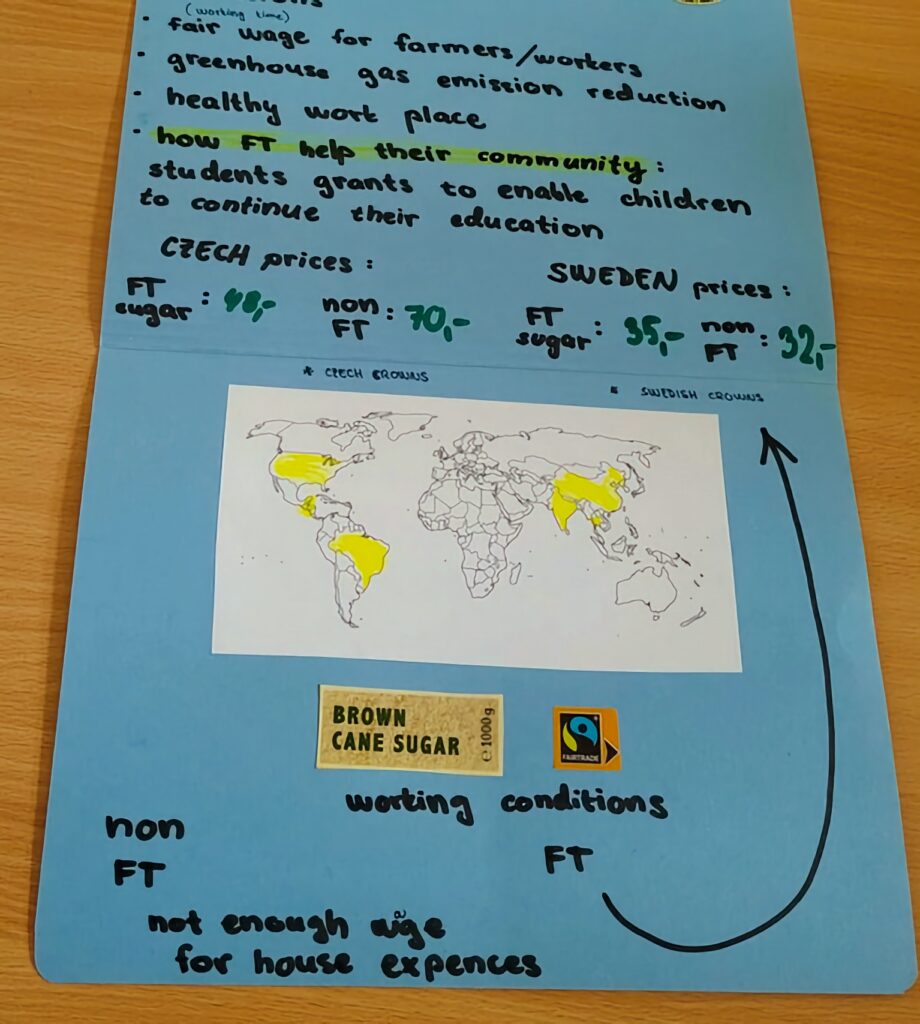 (working time)
• fair wage for farmers/workers
• greenhouse gas emission reduction
• healthy work place
• how FT help their community:
students grants to enable children
to continue their education
CZECH prices:
FT sugar: 48,- non FT: 70,-
* CZECH CROWNS
SWEDEN prices:
FT sugar: 35,- non FT: 32,-
* SWEDISH CROWNS
BROWN
CANE SUGAR
℮ 1000 g
FAIRTRADE
working conditions
non
FT
not enough wage
for house expences
FT